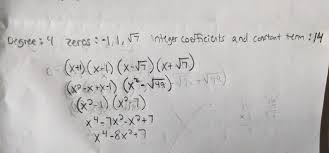 Degree: 4 zeros: -1, 1, √7 Integer coefficients and constant term: 14
(x+1)(x-1)(x-√7)(x+√7)
(x²-x+x-1)(x²-√49)
(x²-1)(x²-7)
x⁴-7x²-x²+7
x⁴-8x²+7